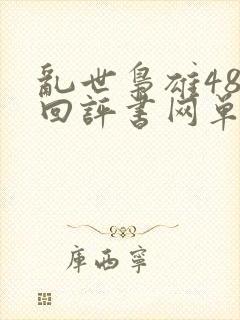 亂世梟雄48
回評書网单
庫西寧